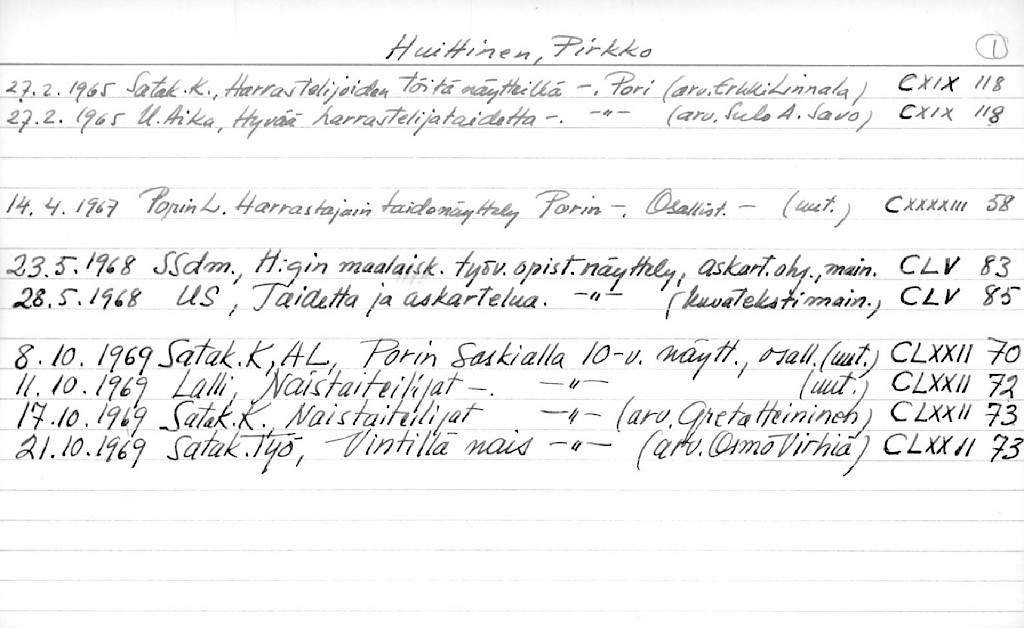 Huittinen, Pirkko 1
27.2.1965 Satak.K., Harrastelijoiden töitä näytteillä -. Pori (arv. Erkki Linnala) CXIX 118
27.2.1965 U. Aika, Hyvää harrastelijataidetta -. -"- (arv. Sulo A. Savo) CXIX 118
14.4.1967 Porin L. Harrastajain taidenäyttely Porin -. Osallist. - (uut.) CXXXXIII 58
23.5.1968 SSdm., H:gin maalaisk. työv. opist. näyttely, askart. ohj., main. CLV 83
28.5.1968 US, Taidetta ja askartelua. -"- (kuvateksti main.) CLV 85
8.10.1969 Satak.K, AL, Porin Saskialla 10-v. näytt., osall. (uut.) CLXXII 70
11.10.1969 Lalli, Naistaiteilijat -. -"- (uut.) CLXXII 72
17.10.1969 Satak.K, Naistaiteilijat -"- (arv. Greta Heininen) CLXXII 73
21.10.1969 Satak.Työ, Vintillä nais -"- (arv. Osmo Virhiä) CLXXII 73